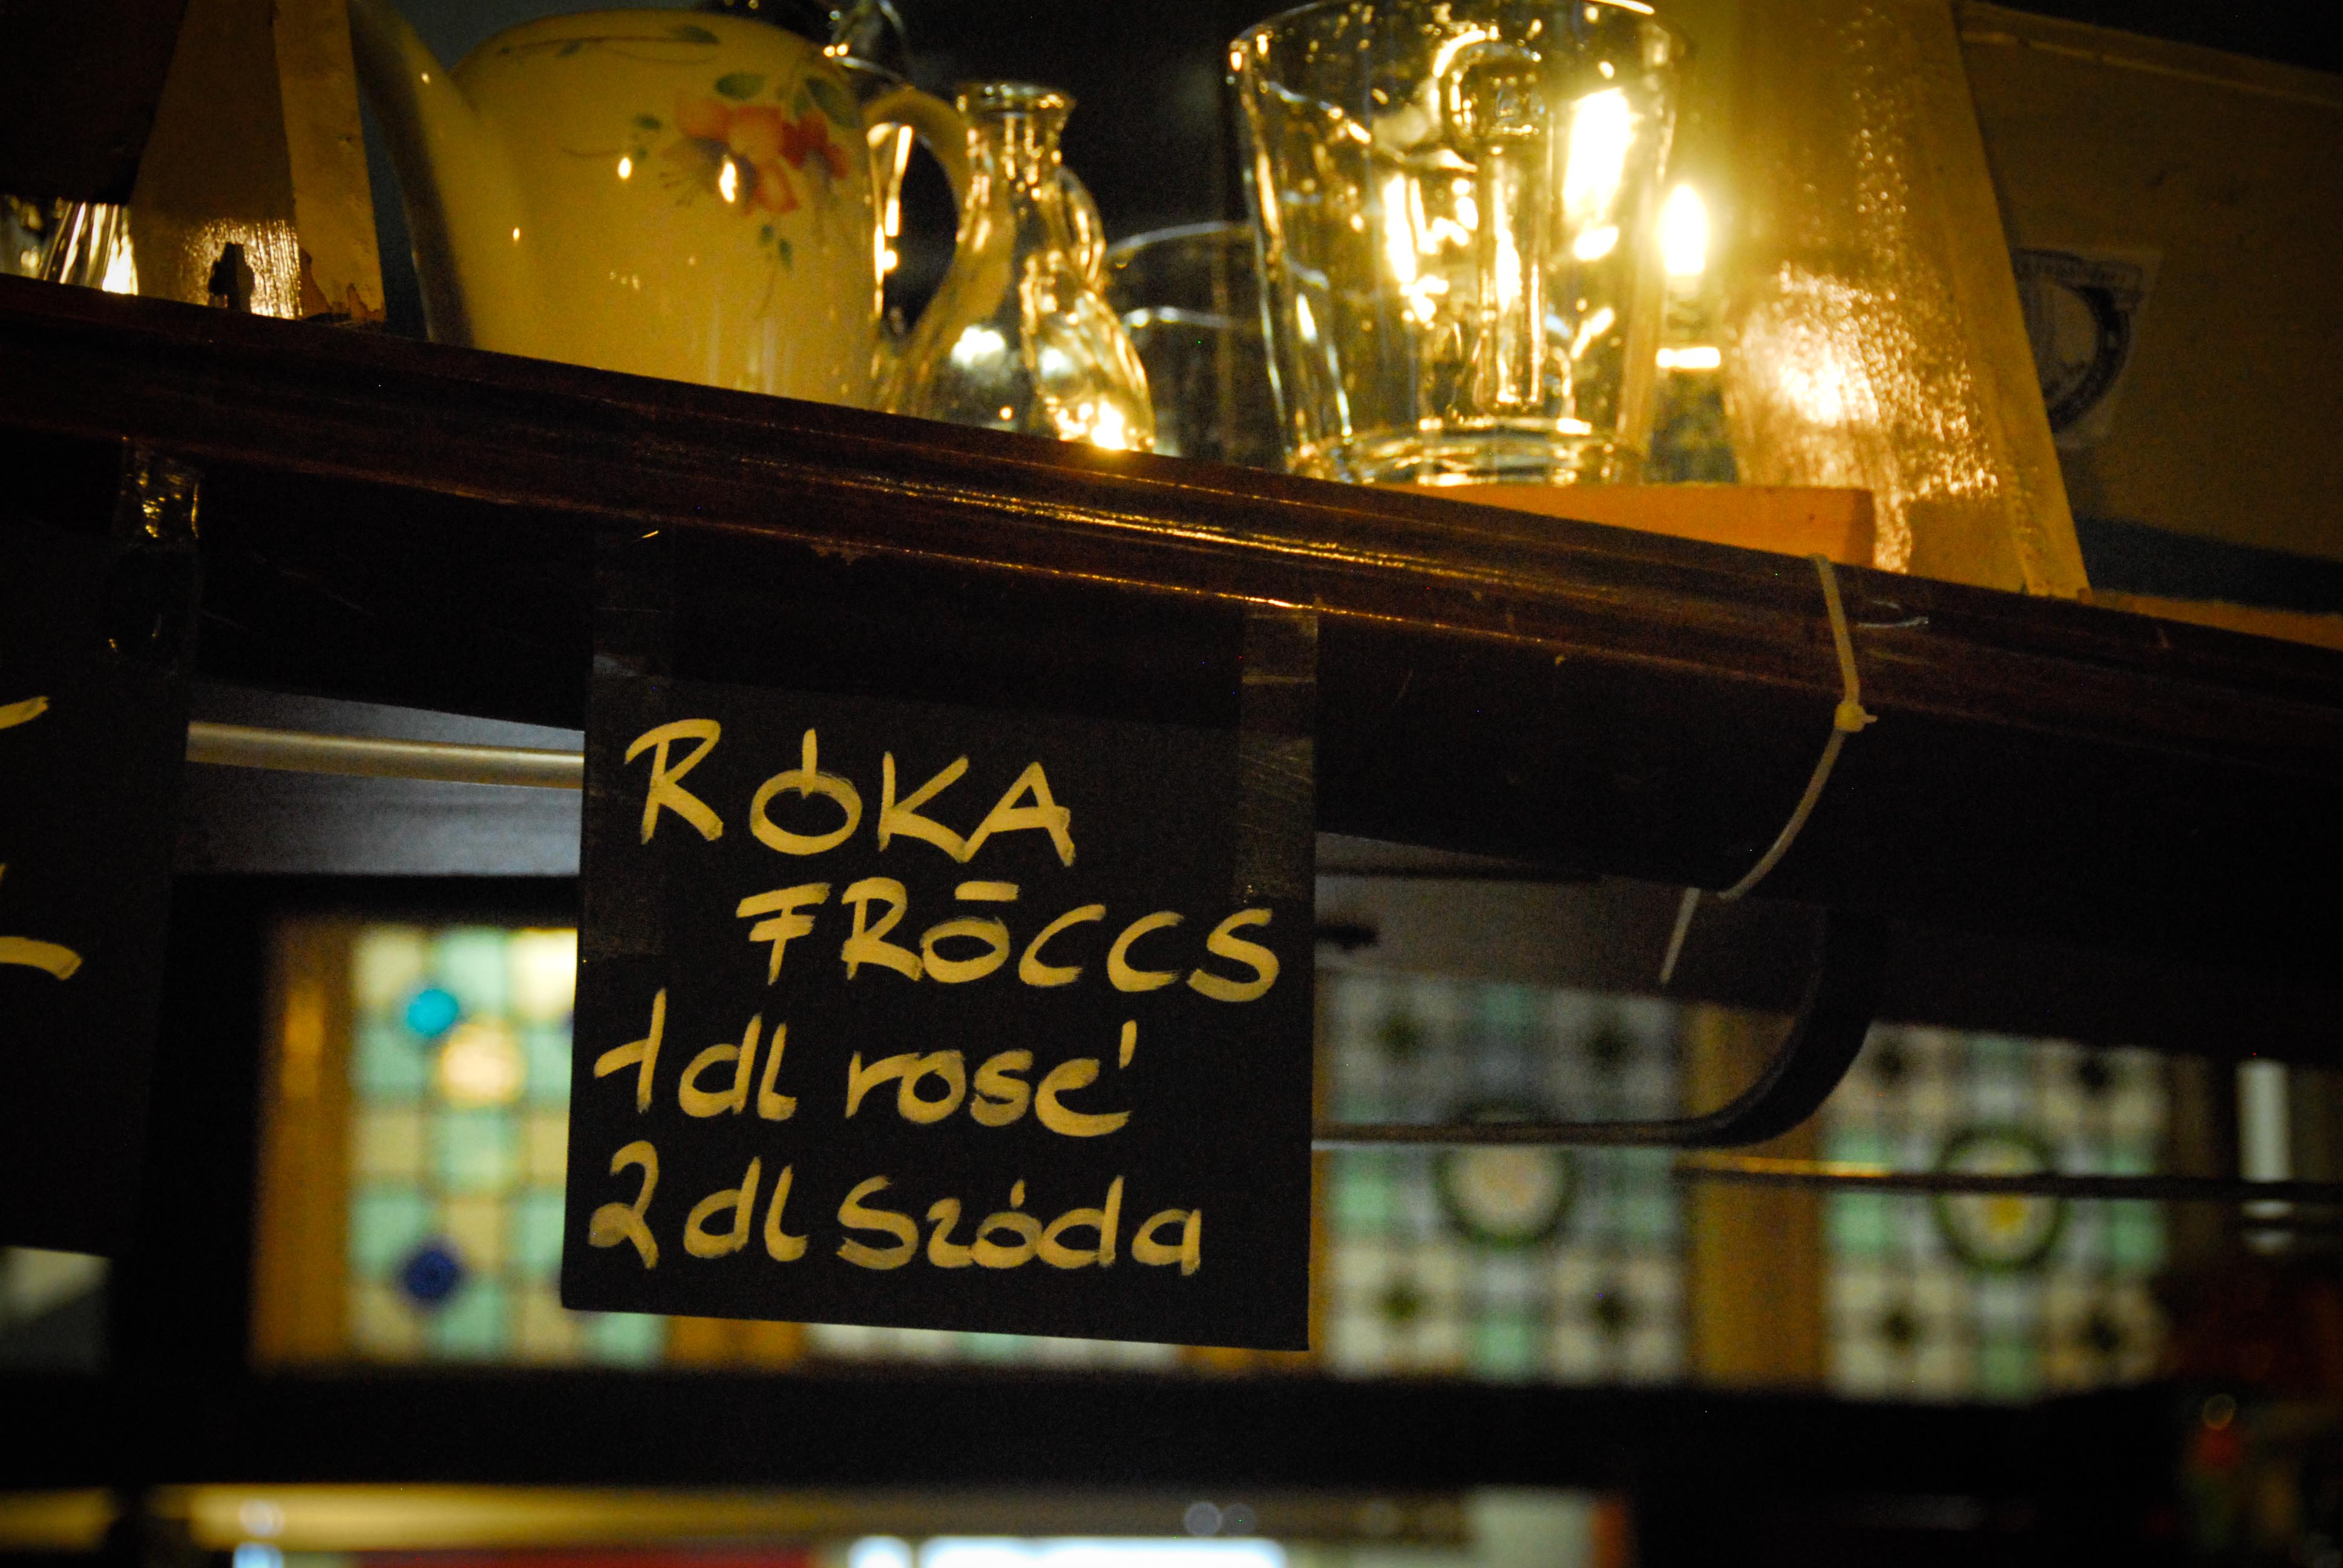 RÓKA
FRŌCCS
1dl rosé
2dl Szóda